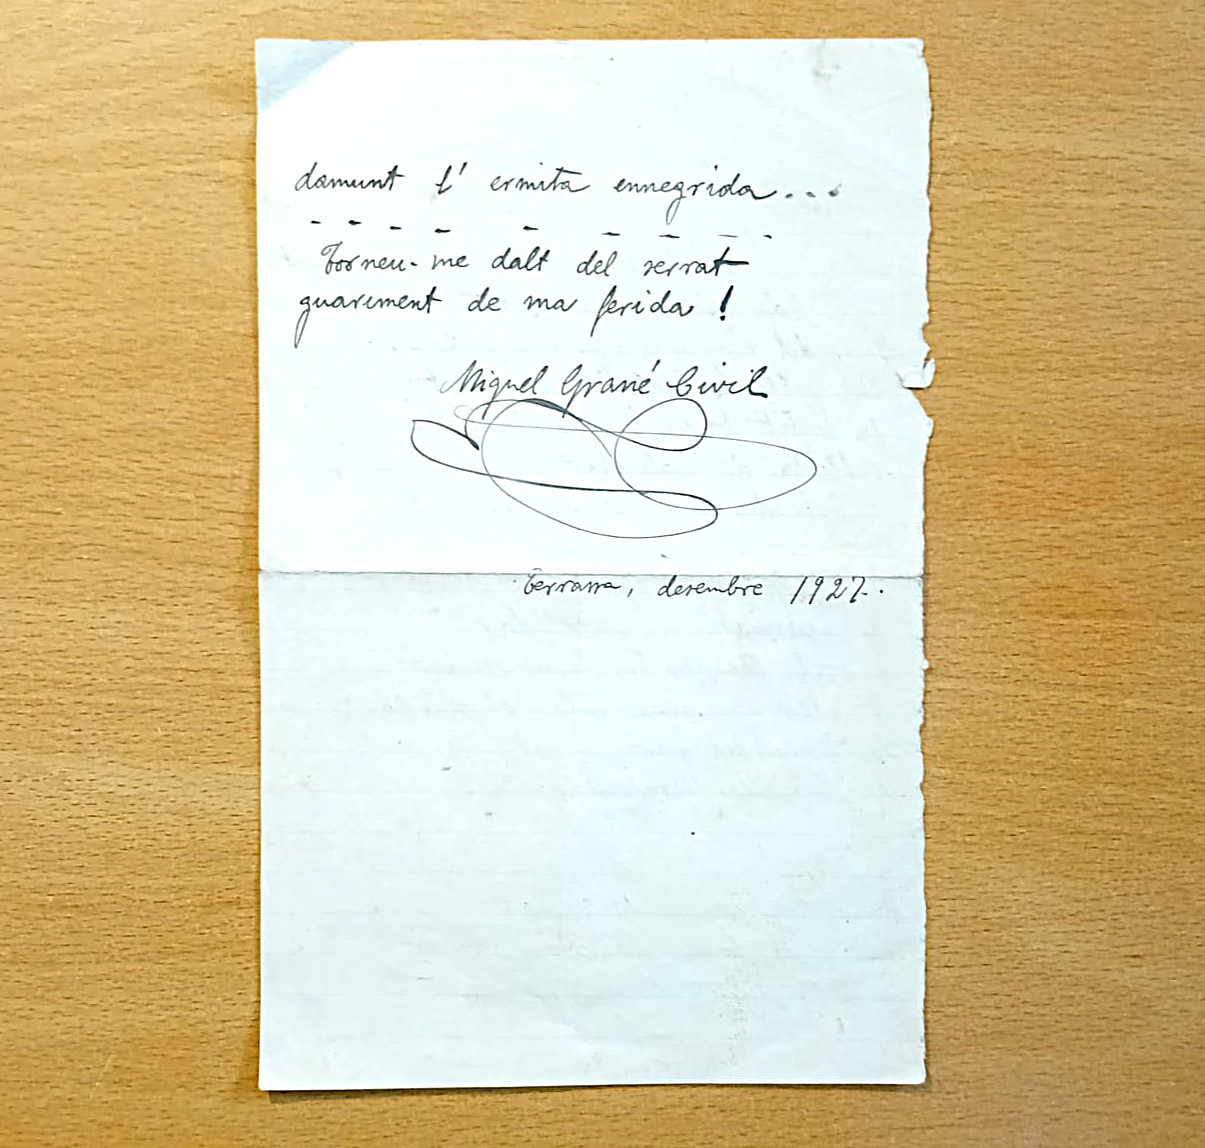 damunt l' ermita ennegrida...
- - - - - - - -
Torneu-me dalt del serrat
guariment de ma ferida!
Miquel Grané Civil
Terrassa, desembre 1927.